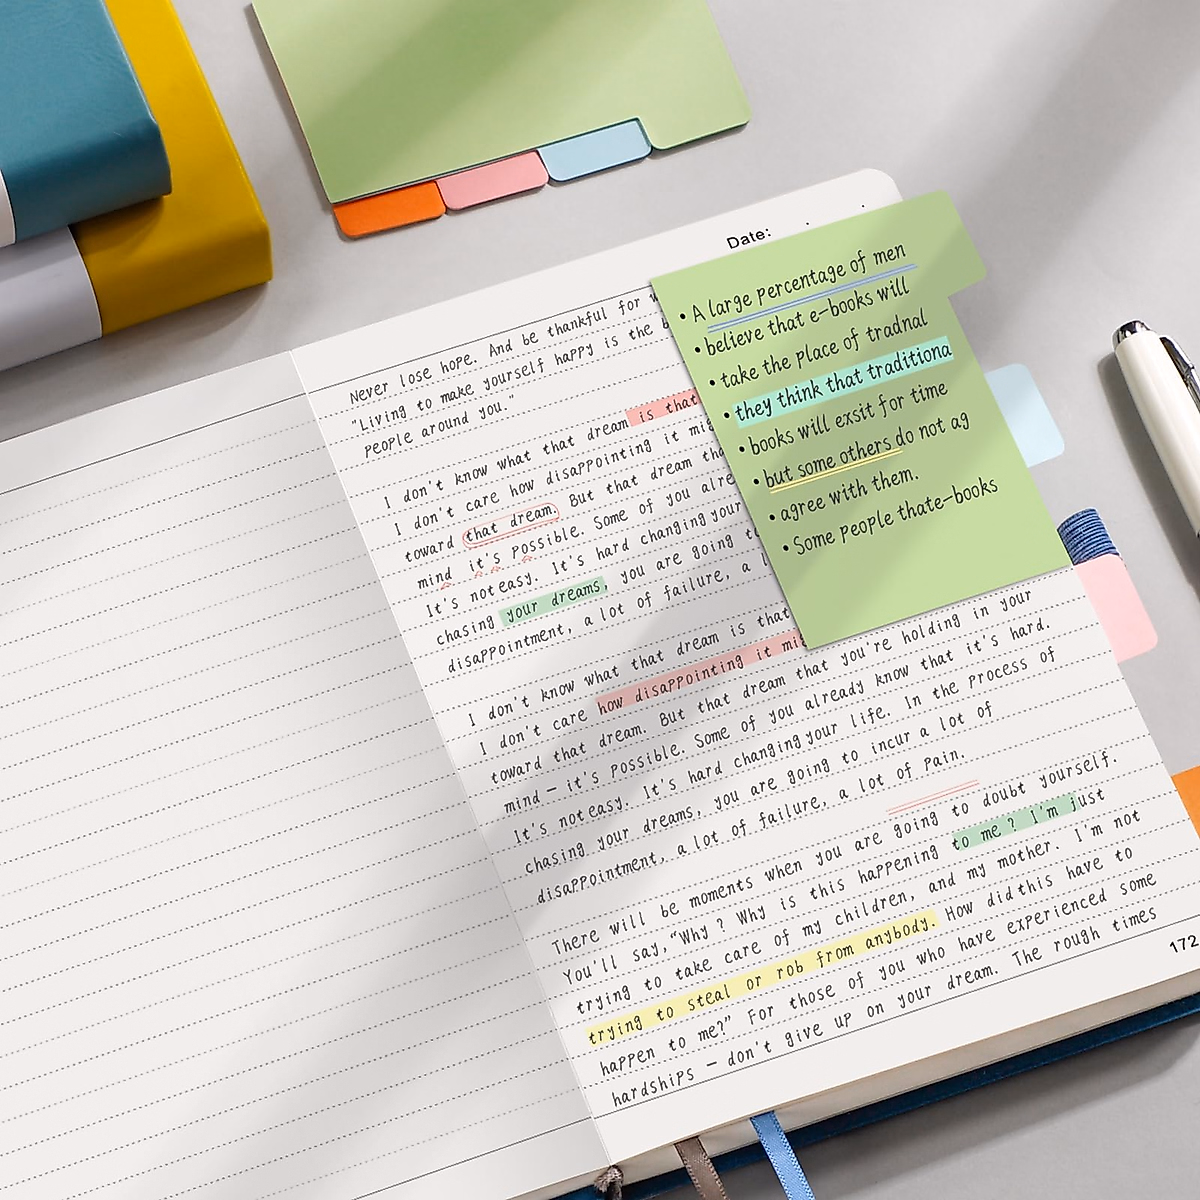 Date:
Never lose hope. And be thankful for
"Living to make yourself happy is the
people around you."
I don't know what that dream is that
I don't care how disappointing it
toward that dream. But that dream
mind it's possible. Some of you
It's not easy. It's hard changing your
chasing your dreams, you are going
disappointment, a lot of failure, a
I don't know what that dream is that
I don't care how disappointing it
toward that dream. But that dream that you're holding in your
mind – it's possible. Some of you already know that it's hard.
It's not easy. It's hard changing your life. In the process of
chasing your dreams, you are going to incur a lot of
disappointment, a lot of failure, a lot of pain.
There will be moments when you are going to doubt yourself.
You'll say, "Why ? Why is this happening to me ? I'm just
trying to take care of my children, and my mother. I'm not
trying to steal or rob from anybody. How did this have to
happen to me?" For those of you who have experienced some
hardships – don't give up on your dream. The rough times
172
• A large percentage of men
• believe that e-books will
• take the place of tradnal
• they think that traditiona
• books will exsit for time
• but some others do not ag
• agree with them.
• Some people thate-books